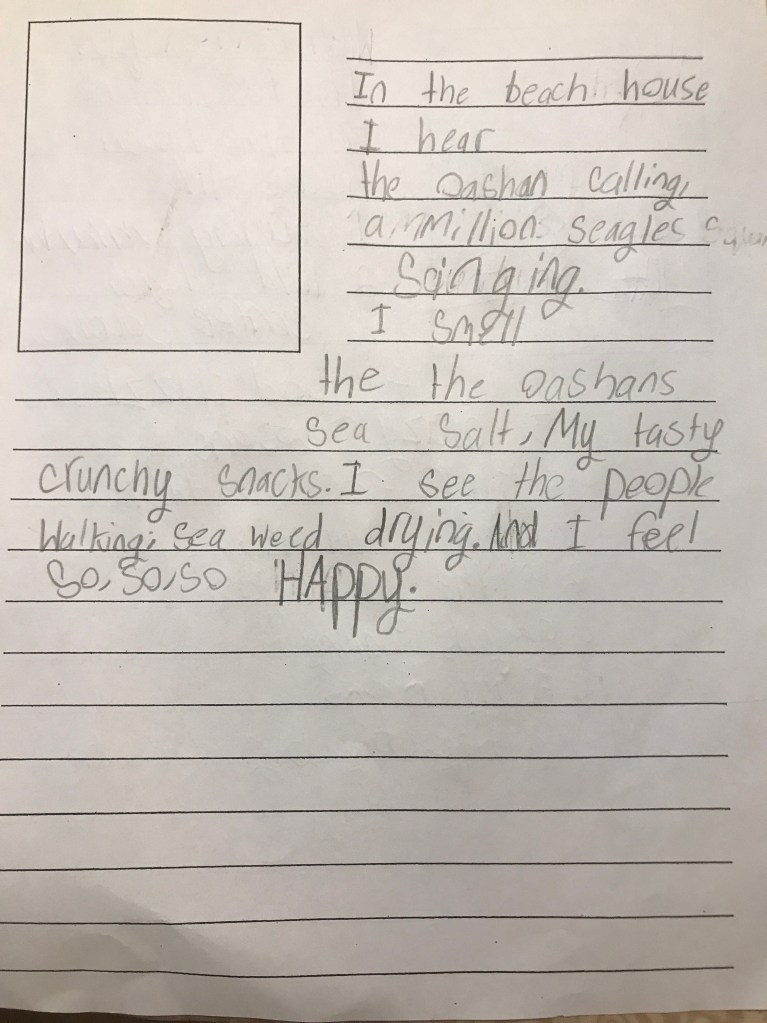 In the beach house
I hear
the oashan calling,
a million seagles
Scinging.
I smell
the the oashans
sea salt, My tasty
crunchy snacks. I see the people
Walking, sea weed drying. And I feel
So, So, so HAppy.